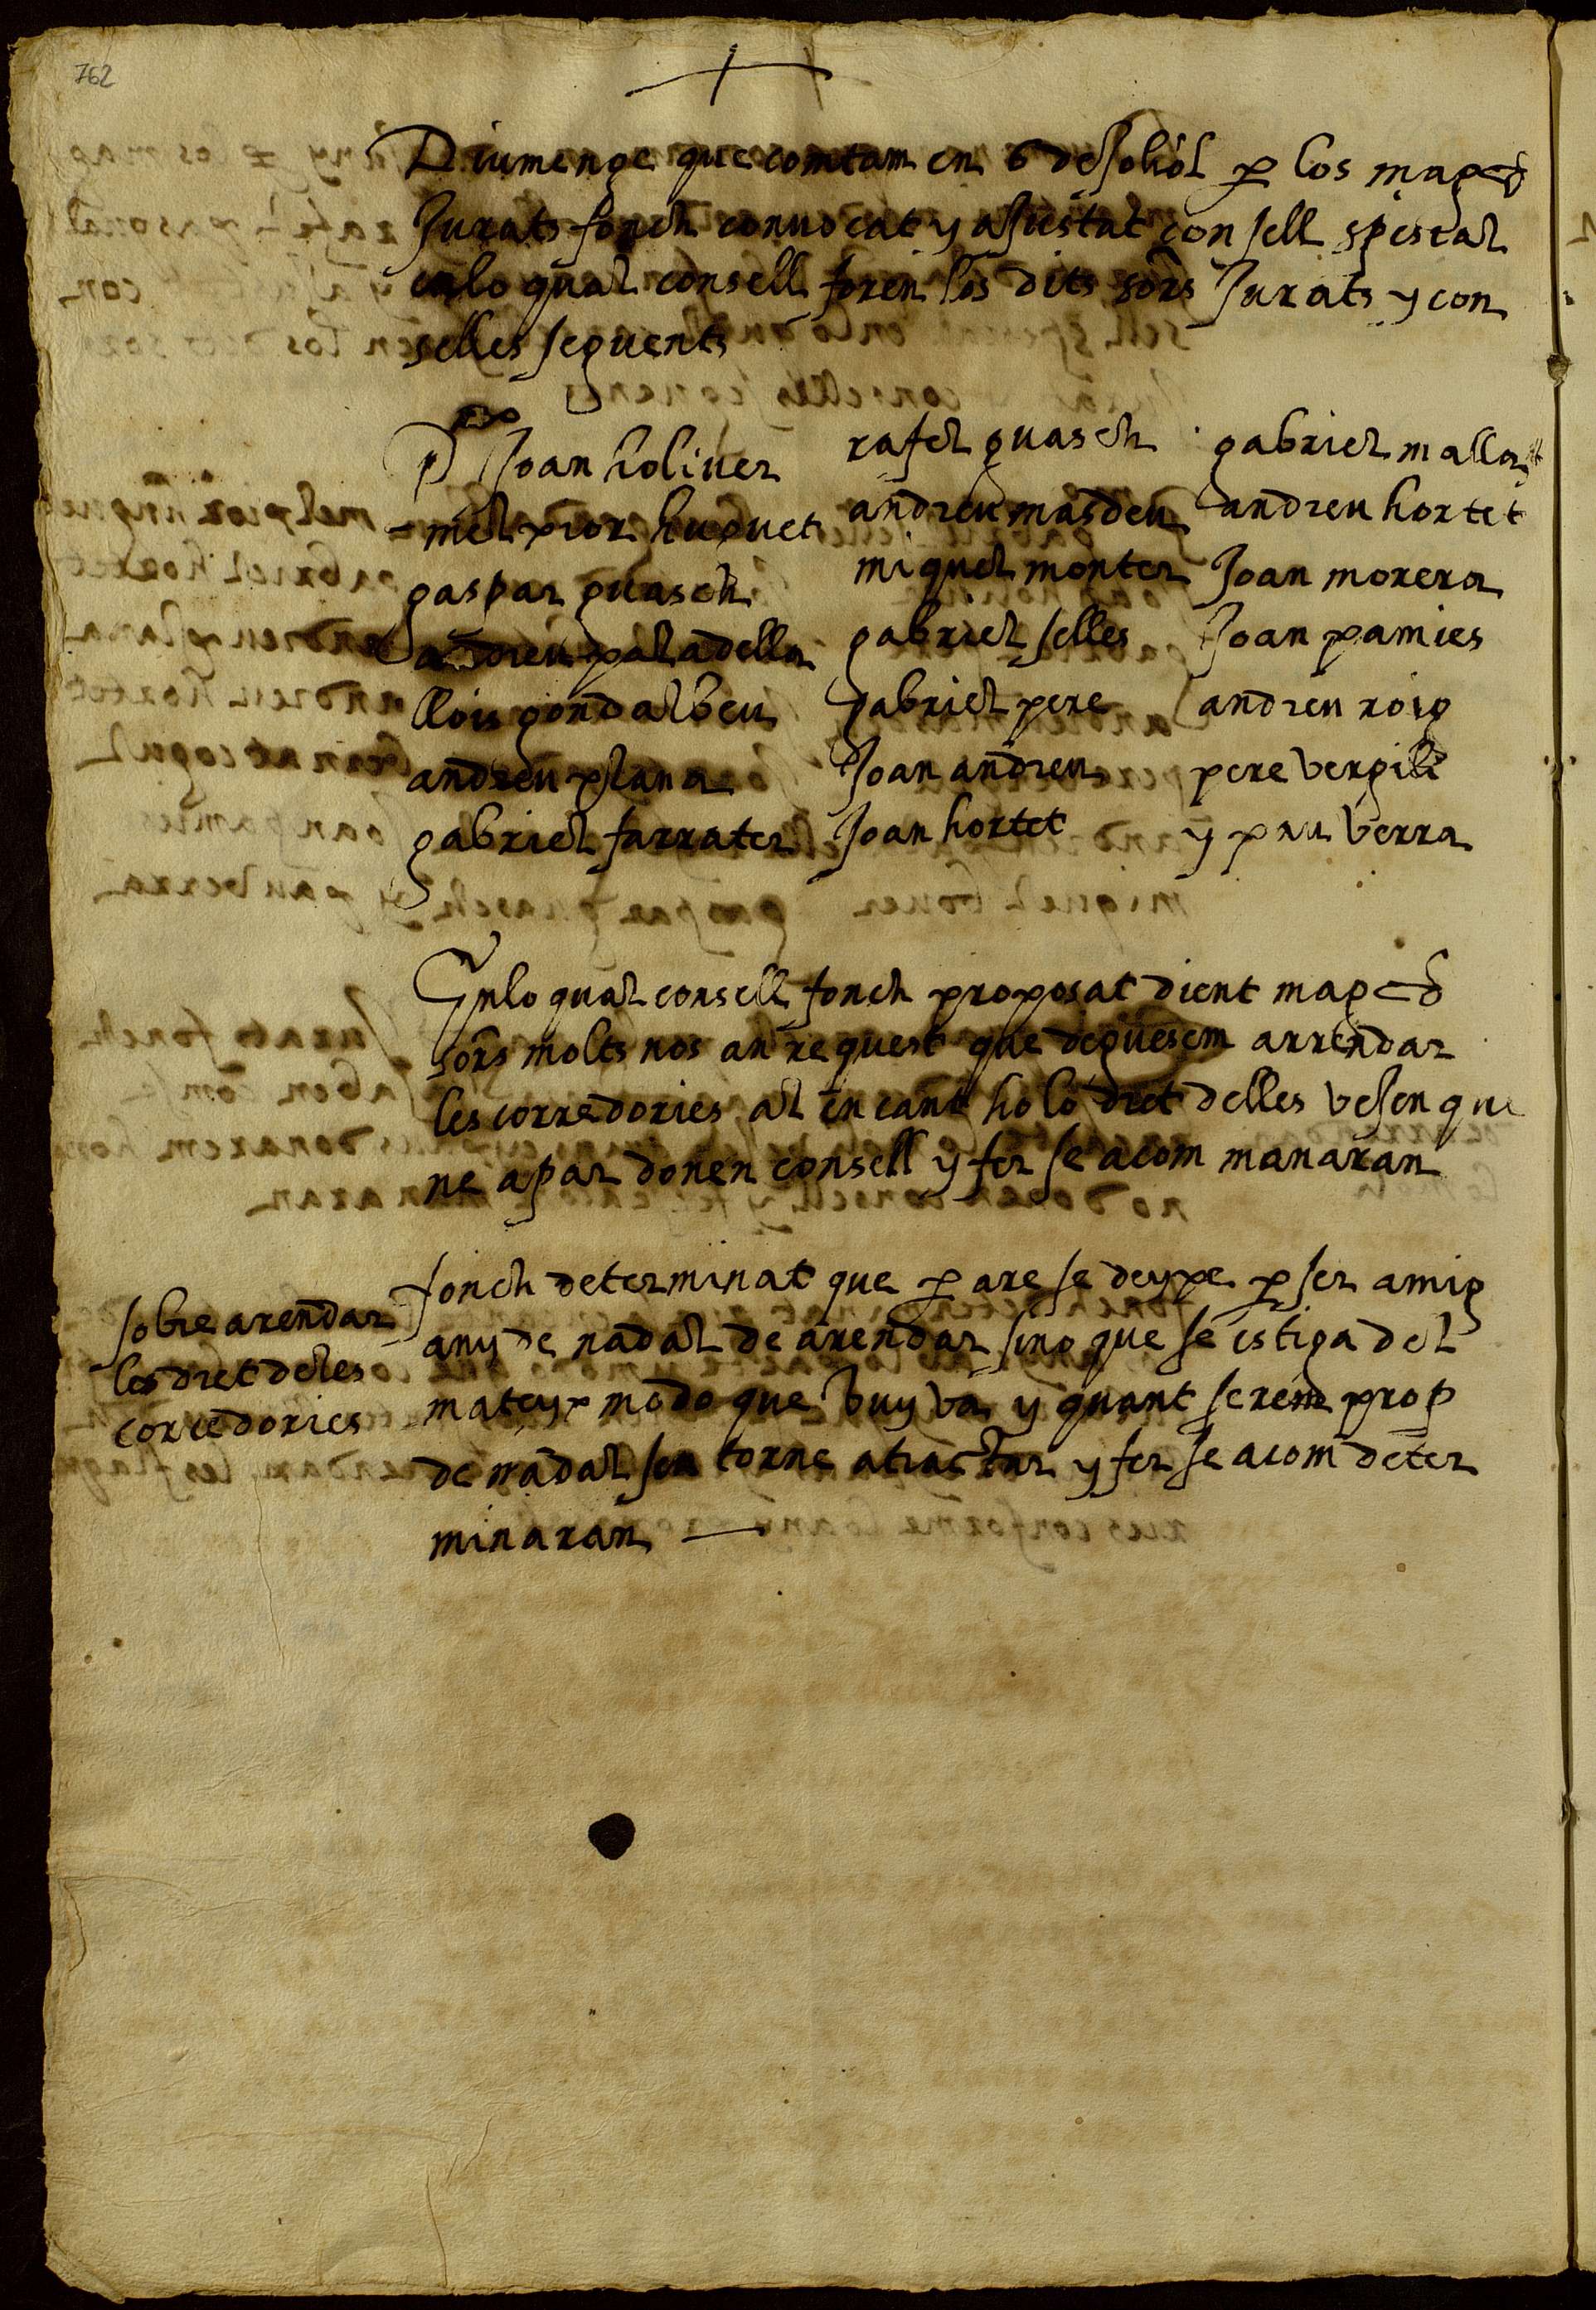 762
Diumenge que comtam en 6 de Joliol p los magchs
Jurats fonch convocat y ajustat consell spesial
enlo qual consell foren los dits sors Jurats y con
selles seguents
p Joan holiver
melxior huguet
gaspar guasch
andreu paladella
llois gondalbeu
andreu plana
gabriel farrater
rafel guasch
andreu masdeu
miquel monter
gabriel selles
gabriel pere
Joan andreu
Joan hortet
gabriel mallar
andreu hortet
Joan morera
Joan pamies
andreu roig
pere vergili
y pau verra
Enlo qual consell fonch proposat dient magchs
sors molts nos an request que deguesem arrendar
les corredories al encant ho lo dret delles vejen que
ne apar donen consell y fer se a com manaran
sobre arendar
los dret deles
corredories
fonch determinat que p are se deyxe p ser amig
any de nadal de arendar sino que se estiga del
mateyx modo que vuy va y quant serem prop
de nadal sen torne a tractar y fer se a com deter
minaran